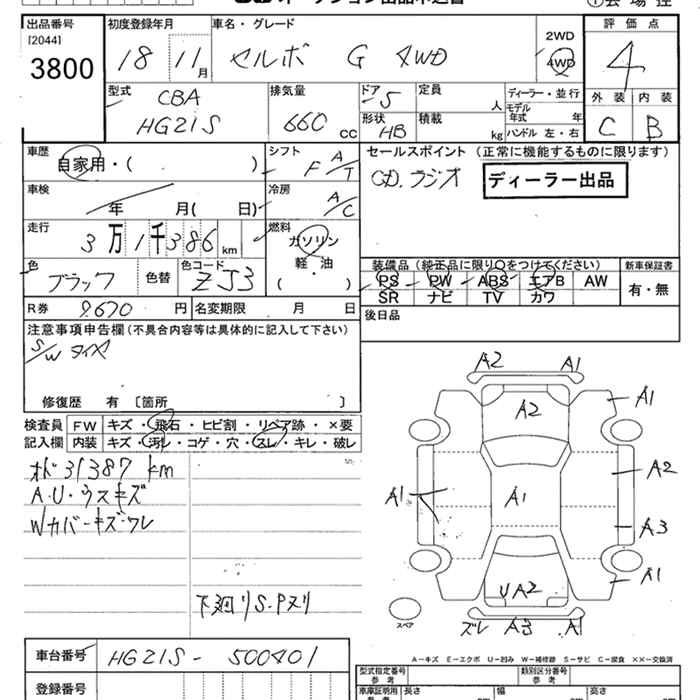 オークション出品申込書
出品番号 初度登録年月 車名・グレード 評価点
[2044]
3800
18 11月 セルボ G 4WD
2WD
4WD
4
型式 CBA
HG21S
排気量 660 cc
ドア 5
形状 HB
定員 人
積載 kg
ディーラー・並行
モデル年式 年
ハンドル 左・右
外装 内装
C B
車歴 自家用・( )
シフト F A/T
セールスポイント (正常に機能するものに限ります)
CD.ラジオ
ディーラー出品
車検 年 月( 日)
冷房 A/C
走行 3万1千386km
燃料 ガソリン
軽・油
( )
色 ブラック 色替 色コード ZJ3
装備品 (純正品に限り○をつけてください) 新車保証書
PS PW ABS エアB AW
SR ナビ TV カワ
有・無
R券 9.670 円 名変期限 月 日
後日品
注意事項申告欄(不具合内容等は具体的に記入して下さい)
S/W タイヤ
修復歴 有 〔箇所 〕
検査員記入欄
FW キズ・飛石・ヒビ割・リペア跡・×要
内装 キズ・汚れ・コゲ・穴・スレ・キレ・破レ
オド31387km
A.U・ウスキズ
Wカバーキズ・ワレ
下廻りS・Pヌリ
A2 A1
A2
A1
A2
A1
A1
A3
A1
UA2
スペア
ズレ A3 A1
A-キズ E-エクボ U-凹み W-補修跡 S-サビ C-腐食 ××-交換済
車台番号 HG21S-500401
登録番号
型式指定番号 参考
類別区分番号 参考
車庫証明用 参考
長さ cm
幅 cm
高さ cm